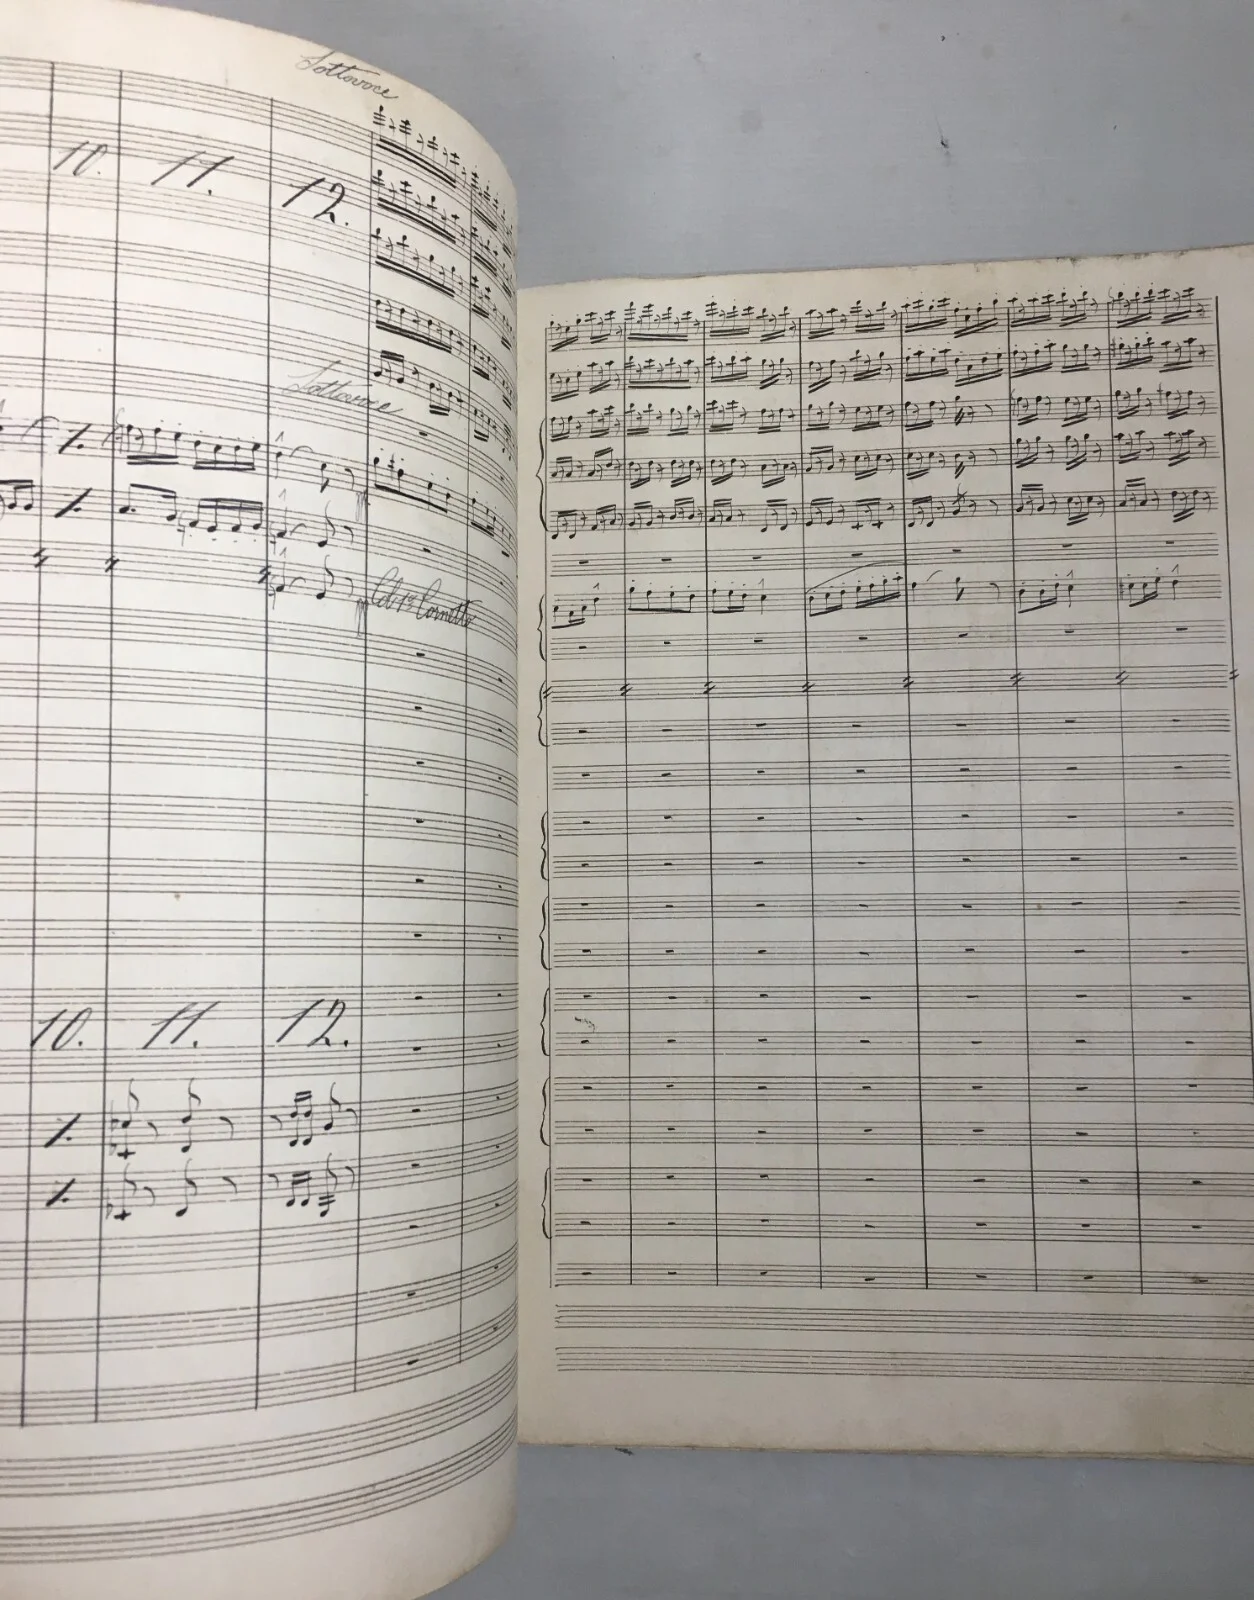 Sottovoce
10. 11. 12.
Sottovoce
Col 1º Cornetto
10. 11. 12.